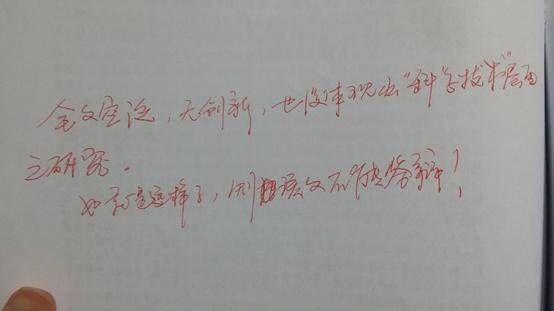 全文空泛，无创新，也没体现出“科学技术”层面
之研究.
如就是这样了，则该文不答辩！